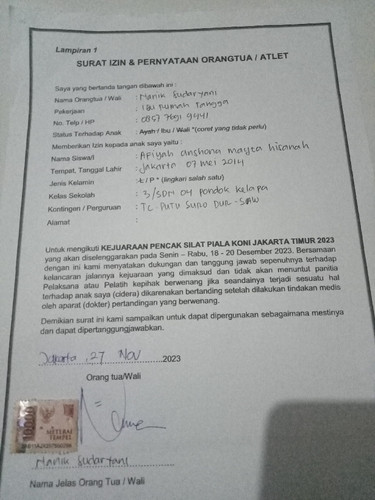 Lampiran 1
SURAT IZIN & PERNYATAAN ORANGTUA / ATLET
Saya yang bertanda tangan dibawah ini :
Nama Orangtua / Wali : Manik Sudaryani
Pekerjaan : Ibu Rumah Tangga
No. Telp / HP : 0857 7691 9441
Status Terhadap Anak : Ayah / Ibu / Wali *(coret yang tidak perlu)
Memberikan Izin kepada anak saya yaitu :
Nama Siswa/i : Afiyah anshona mayza hisanah
Tempat, Tanggal Lahir : Jakarta 07 Mei 2014
Jenis Kelamin : L / P * (lingkari salah satu)
Kelas Sekolah : 3/SDN 04 Pondok Kelapa
Kontingen / Perguruan : TC. PUTU SURO DUR-SAW
Alamat :
Untuk mengikuti KEJUARAAN PENCAK SILAT PIALA KONI JAKARTA TIMUR 2023
yang akan diselenggarakan pada Senin – Rabu, 18 - 20 Desember 2023. Bersamaan
dengan ini kami menyatakan dukungan dan tanggung jawab sepenuhnya terhadap
kelancaran jalannya kejuaraan yang dimaksud dan tidak akan menuntut panitia
Pelaksana atau Pelatih kapihak berwenang jika seandainya terjadi sesuatu hal
terhadap anak saya (cidera) dikarenakan bertanding setelah dilakukan tindakan medis
oleh aparat (dokter) pertandingan yang berwenang.
Demikian surat ini kami sampaikan untuk dapat dipergunakan sebagaimana mestinya
dan dapat dipertanggungjawabkan.
Jakarta, 27 Nov 2023
Orang tua/Wali
10000
METERAI
TEMPEL
Manik Sudaryani
Nama Jelas Orang Tua / Wali